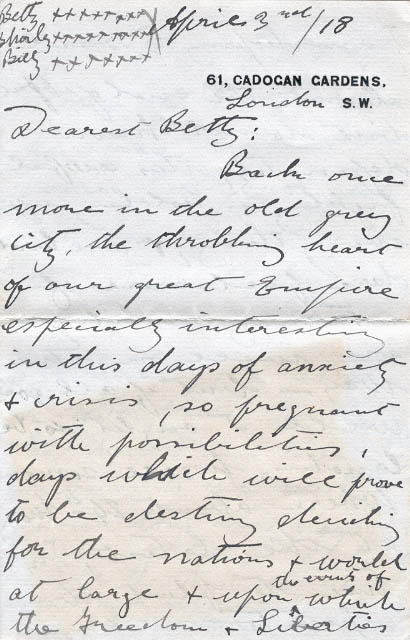 Betty xxxxxxxx
Shirley xxxxxxxxx
Billy xxxxxxx
April 3rd/18
61, CADOGAN GARDENS,
London S.W.
Dearest Betty:
Back once
more in the old grey
city, the throbbing heart
of our great Empire
especially interesting
in this days of anxiety
& crisis, so pregnant
with possibilities,
days which will prove
to be destiny deciding
for the nations & world
at large & upon the events of which
the Freedom & Liberties